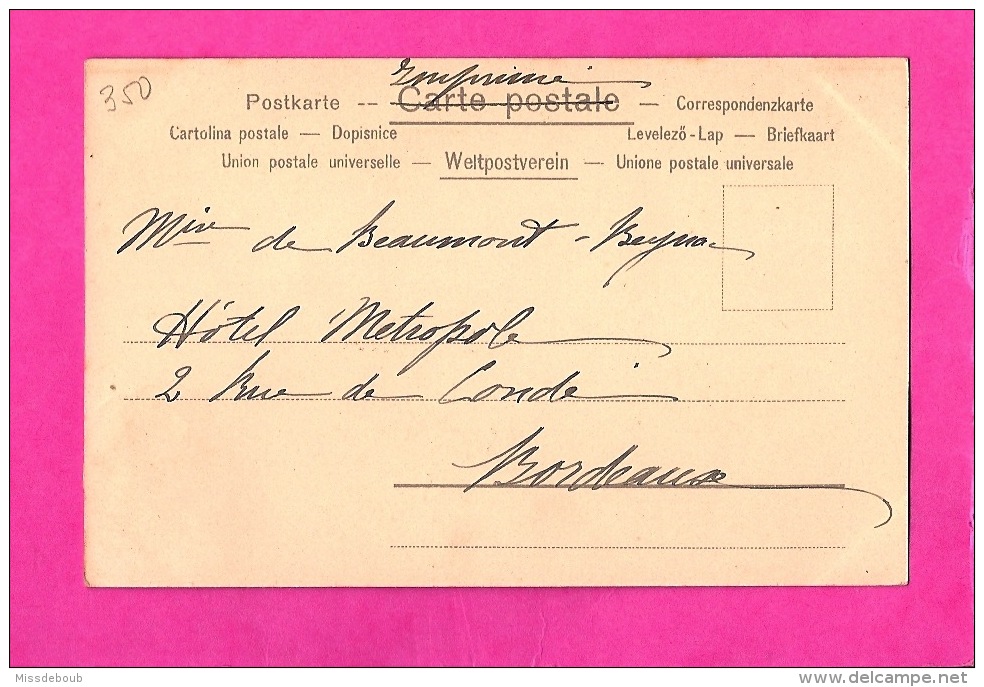 350
Imprimé
Postkarte -- Carte postale — Correspondenzkarte
Cartolina postale — Dopisnice Levelező-Lap — Briefkaart
Union postale universelle — Weltpostverein — Unione postale universale
Mme de Beaumont-Beynac
Hôtel Métropole
2 Rue de Condé
Bordeaux
Missdeboub
www.delcampe.net